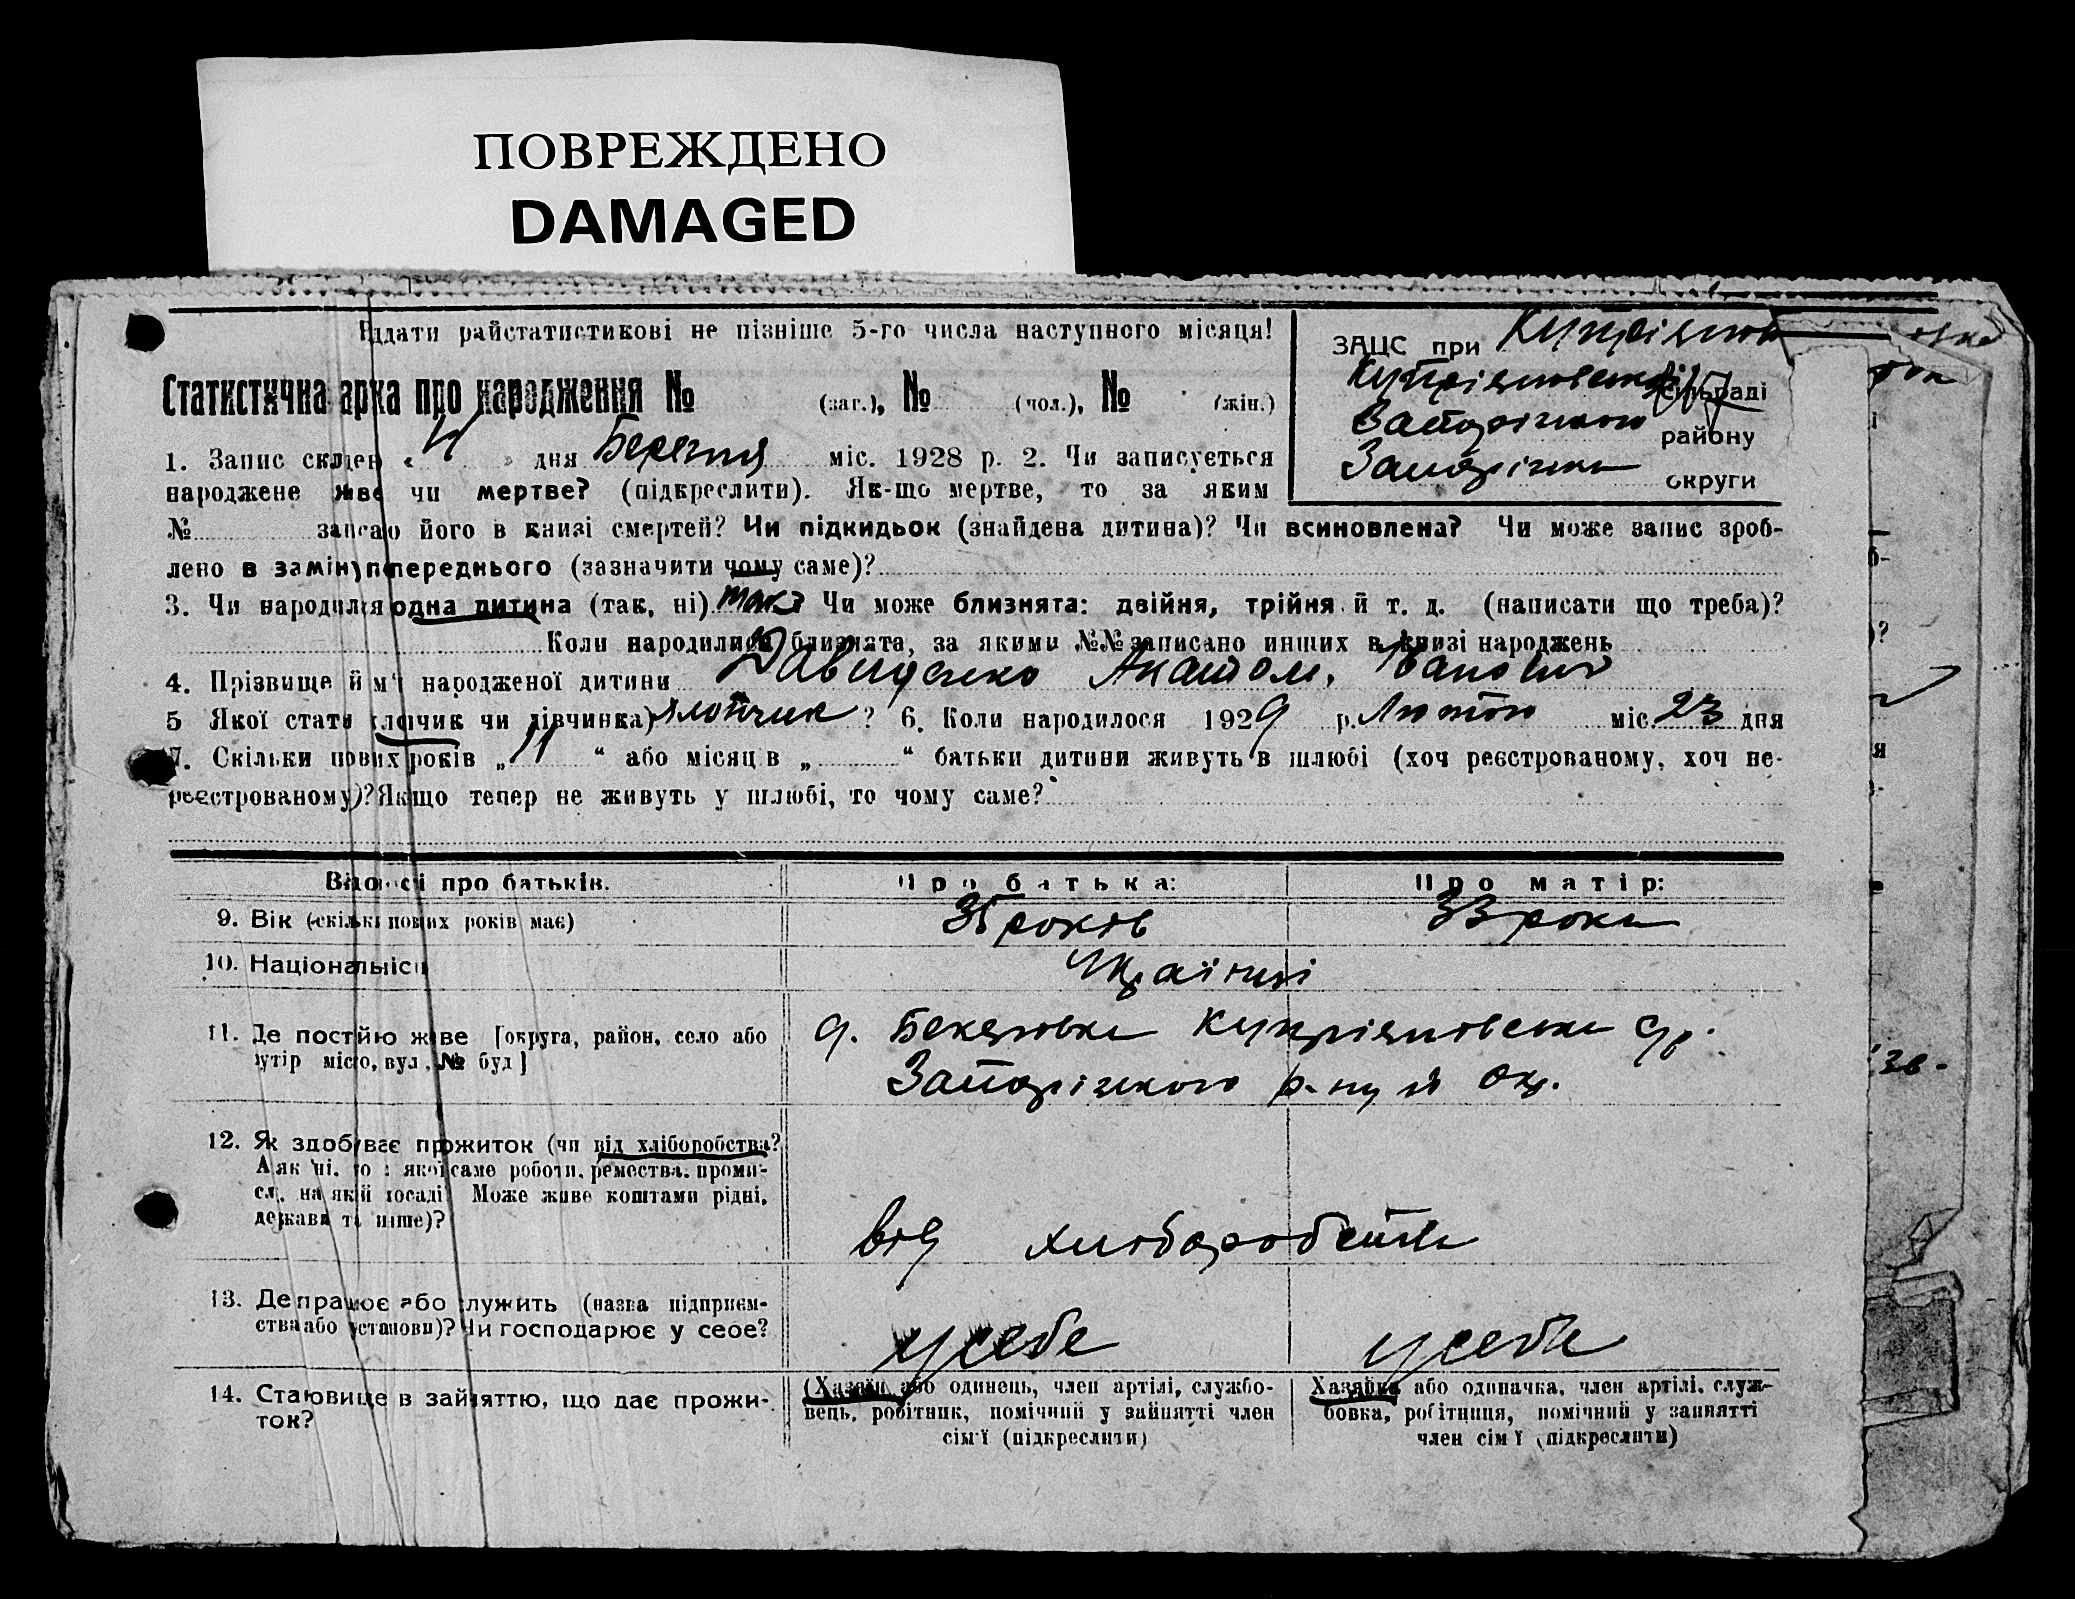 ПОВРЕЖДЕНО
DAMAGED
Віддати райстатистикові не пізніше 5-го числа наступного місяця!
ЗАЦС при
сільраді
Запорізького району
округи
Статистична арка про народження № (заг.), № (чол.), № (жін.)
1. Запис складен « » дня Березня міс. 1928 р. 2. Чи записується
народжене живе чи мертве? (підкреслити). Як-що мертве, то за яким
№ записано його в книзі смертей? Чи підкидьок (знайдена дитина)? Чи всиновлена? Чи може запис зроб-
лено в заміну попереднього (зазначити чому саме)?
3. Чи народилася одна дитина (так, ні) так? Чи може близнята: двійня, трійня й т. д. (написати що треба)?
Коли народилися близнята, за якими №№ записано инших в книзі народжень
4. Прізвище й ім'я народженої дитини Давиденко Анатол. Іванович
5 Якої стати (хлопчик чи дівчинка) хлопчик? 6. Коли народилося 1929 р. Лютого міс. 23 дня
7. Скільки повних років „ 11 “ або місяців „ “ батьки дитини живуть в шлюбі (хоч реєстрованому, хоч не-
реєстрованому)? Якщо тепер не живуть у шлюбі, то чому саме?
Відомості про батьків. Про батька: Про матір:
9. Вік (скільки повних років має) 35 років 33 роки
10. Національність Українці
11. Де постійно живе [округа, район, село або
хутір місто, вул. № буд]
Запорізького р-ну й Окр.
12. Як здобуває прожиток (чи від хліборобства?
А як ні, то з якої саме роботи, ремества, проми-
сл, на якій посаді? Може живе коштами рідні,
держави та инше)?
від хліборобства
13. Де працює або служить (назва підприєм-
ства або установи)? Чи господарює у себе?
у себе у себе
14. Становище в зайняттю, що дає прожи-
ток?
(Хазяїн або одинець, член артілі, службо-
вець, робітник, помічний у зайнятті член
сім'ї (підкреслити)
Хазяйка або одиначка, член артілі, служ-
бовка, робітниця, помічний у зайнятті
член сім'ї (підкреслити)